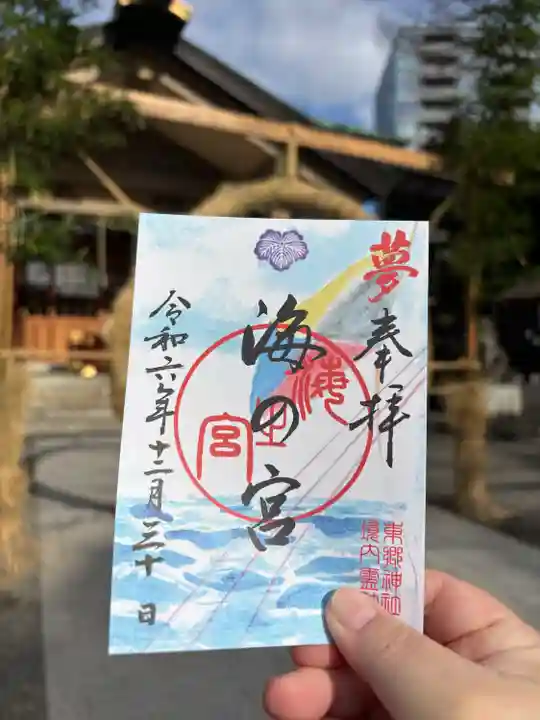 夢
奉拝
海の宮
海之宮
東郷神社
境内霊社
令和六年十二月三十日